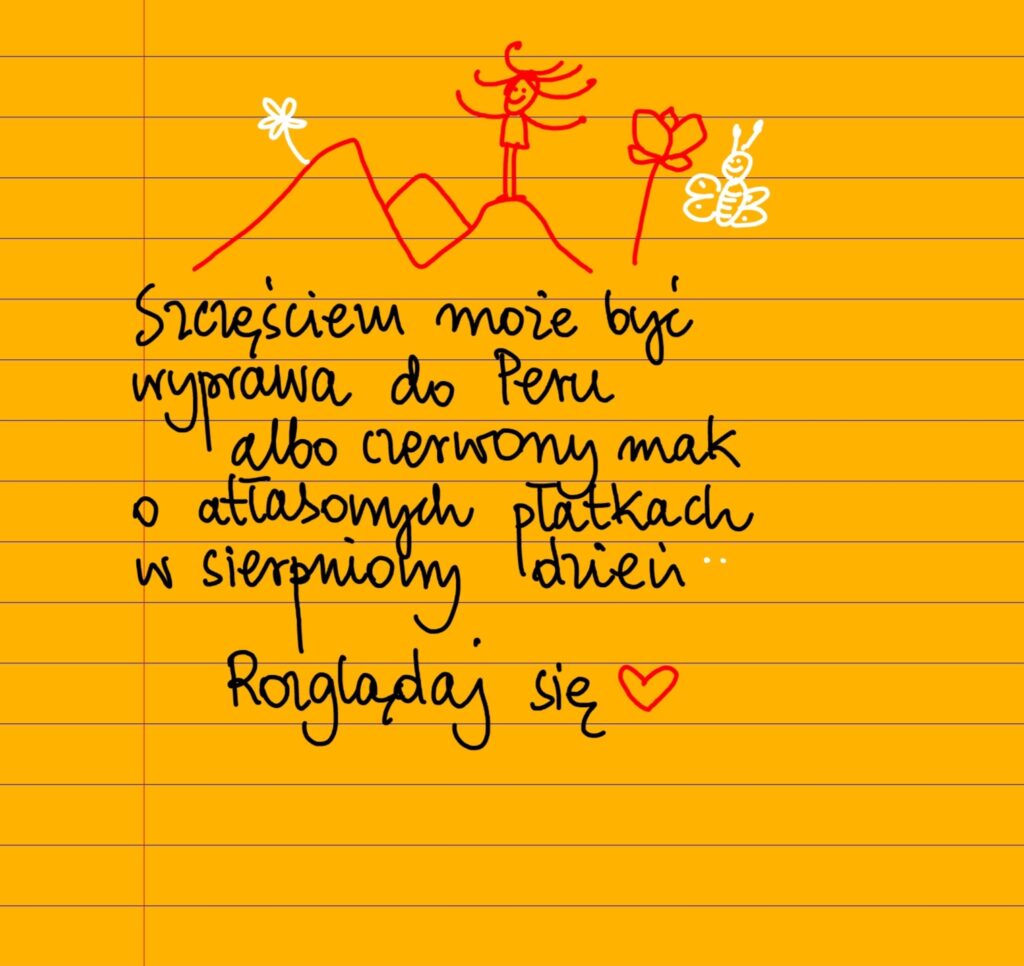 Szczęściem może być
wyprawa do Peru
albo czerwony mak
o atłasowych płatkach
w sierpniowy dzień
Rozglądaj się